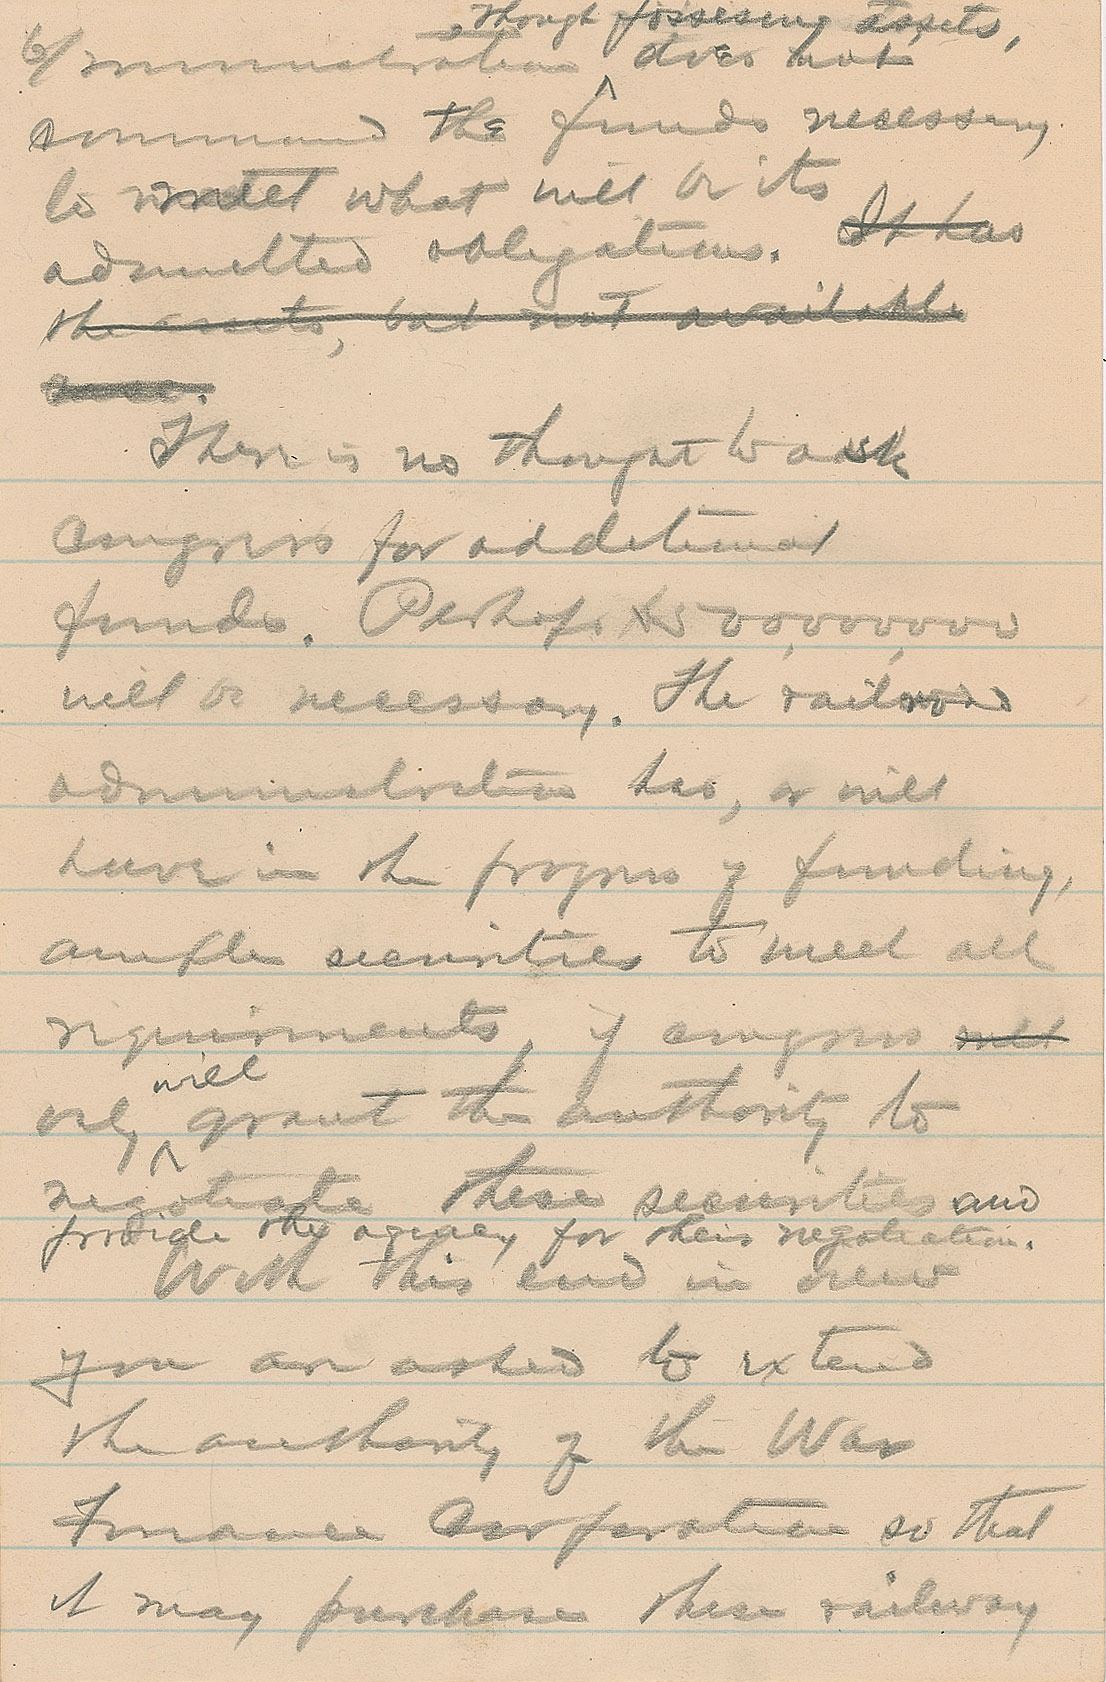 , though possessing assets,
6/ administration ^ does not
command the funds necessary
to meet what will be its
admitted obligations. It has
the assets, but not available
There is no thought to ask
Congress for additional
funds. Perhaps $500,000,000
will be necessary. The railroad
administration has, or will
have in the progress of funding,
ample securities to meet all
requirements, if congress will
only ^ will grant the authority to
negotiate these securities and
provide the agency for their negotiation.
With this end in view
you are asked to extend
the authority of the War
Finance Corporation so that
it may purchase these railway